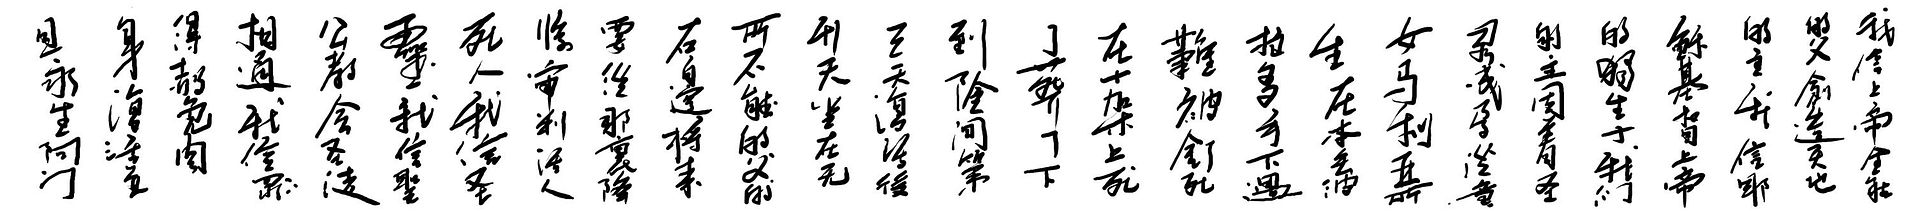 我信上帝全能
的父創造天地
的主我信耶
穌基督上帝
的獨生子我們
的主因着圣
灵成孕從童
女马利亞所
生在本丢彼
拉多手下遇
難被釘死
在十架上死
了葬了下
到陰间第
三天復活後
升天坐在无
所不能的父的
右邊将来
要從那裏降
臨審判活人
死人我信圣
靈我信聖
公教会圣徒
相通我信罪
得赦免肉
身復活並
且永生阿门